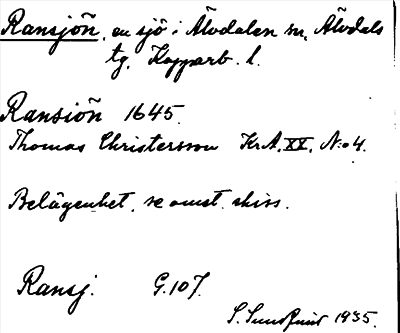 Ransjön, en sjö i Älvdalen sn, Älvdals
tg, Kopparb. l.
Ransiön 1645.
Thomas Christersson Kr.A. XX. N:o 4.
Belägenhet, se omst. skiss.
Ransj. G.107.
S. Sundquist 1935.